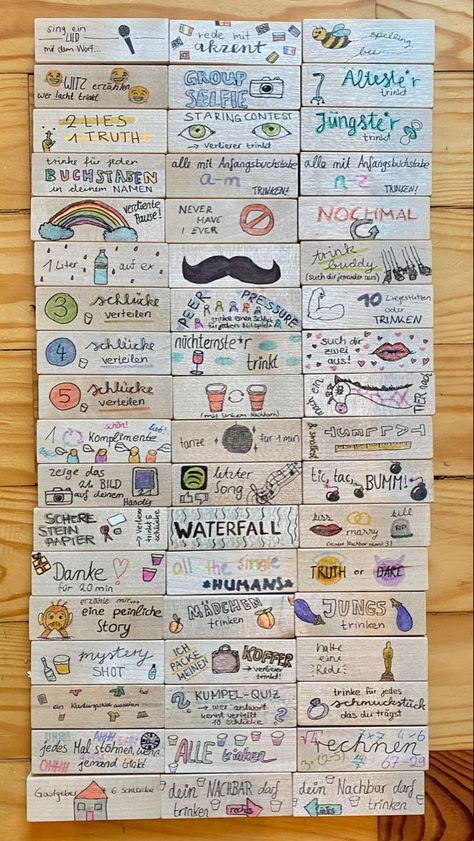 sing ein
LIED
mit dem Wort...
rede mit
akzent
spelling
bee...
WITZ erzählen
wer lacht trinkt
GROUP
SELFIE
Älteste*r
trinkt
2 LIES
1 TRUTH
STARING CONTEST
→ Verlierer trinkt
Jüngste*r
trinkt
trinke für jeden
BUCHSTABEN
in deinem NAMEN
alle mit Anfangsbuchstabe
a-m
TRINKEN!
alle mit Anfangsbuchstabe
n-z
TRINKEN!
verdiente
Pause!
NEVER
HAVE
I EVER
NOCHMAL
1 Liter auf ex
trink
buddy
(such dir jemanden aus)
3 schlücke
verteilen
PEER PRESSURE
10 Liegestützen
oder
TRINKEN
4 schlücke
verteilen
nüchternste*r
trinkt
such dir
zwei
aus!
5 schlücke
verteilen
(mit linkem Nachbarn)
TIER nach
schön!
lieb!
1 Komplimente
tanze für 1 min
zeige das
21. BILD
auf deinem
Handy
letzter
Song
tic, tac, BUMM!
SCHERE
STEIN
PAPIER
WATERFALL
kiss
marry
kill
Danke
für 20 min
all the single
*HUMANS*
TRUTH or DARE
erzähle mir...
eine peinliche
Story
MÄDCHEN
trinken
JUNGS
trinken
mystery
SHOT
ICH
PACKE
MEINEN
KOFFER
→ verlierer
trinkt!
halte
eine
Rede!
ein Kleidungsstück ausziehen
KUMPEL-QUIZ
→ wer antwort
kennt verteilt
10 schlücke
trinke für jedes
schmuckstück
das du trägst
jedes Mal stöhnen, wenn
jemand trinkt
ALLE trinken
√4 7x7 4x6
rechnen
67-29
Gastgeber 6 Schlücke
dein NACHBAR darf
trinken rechts
dein Nachbar darf
links trinken